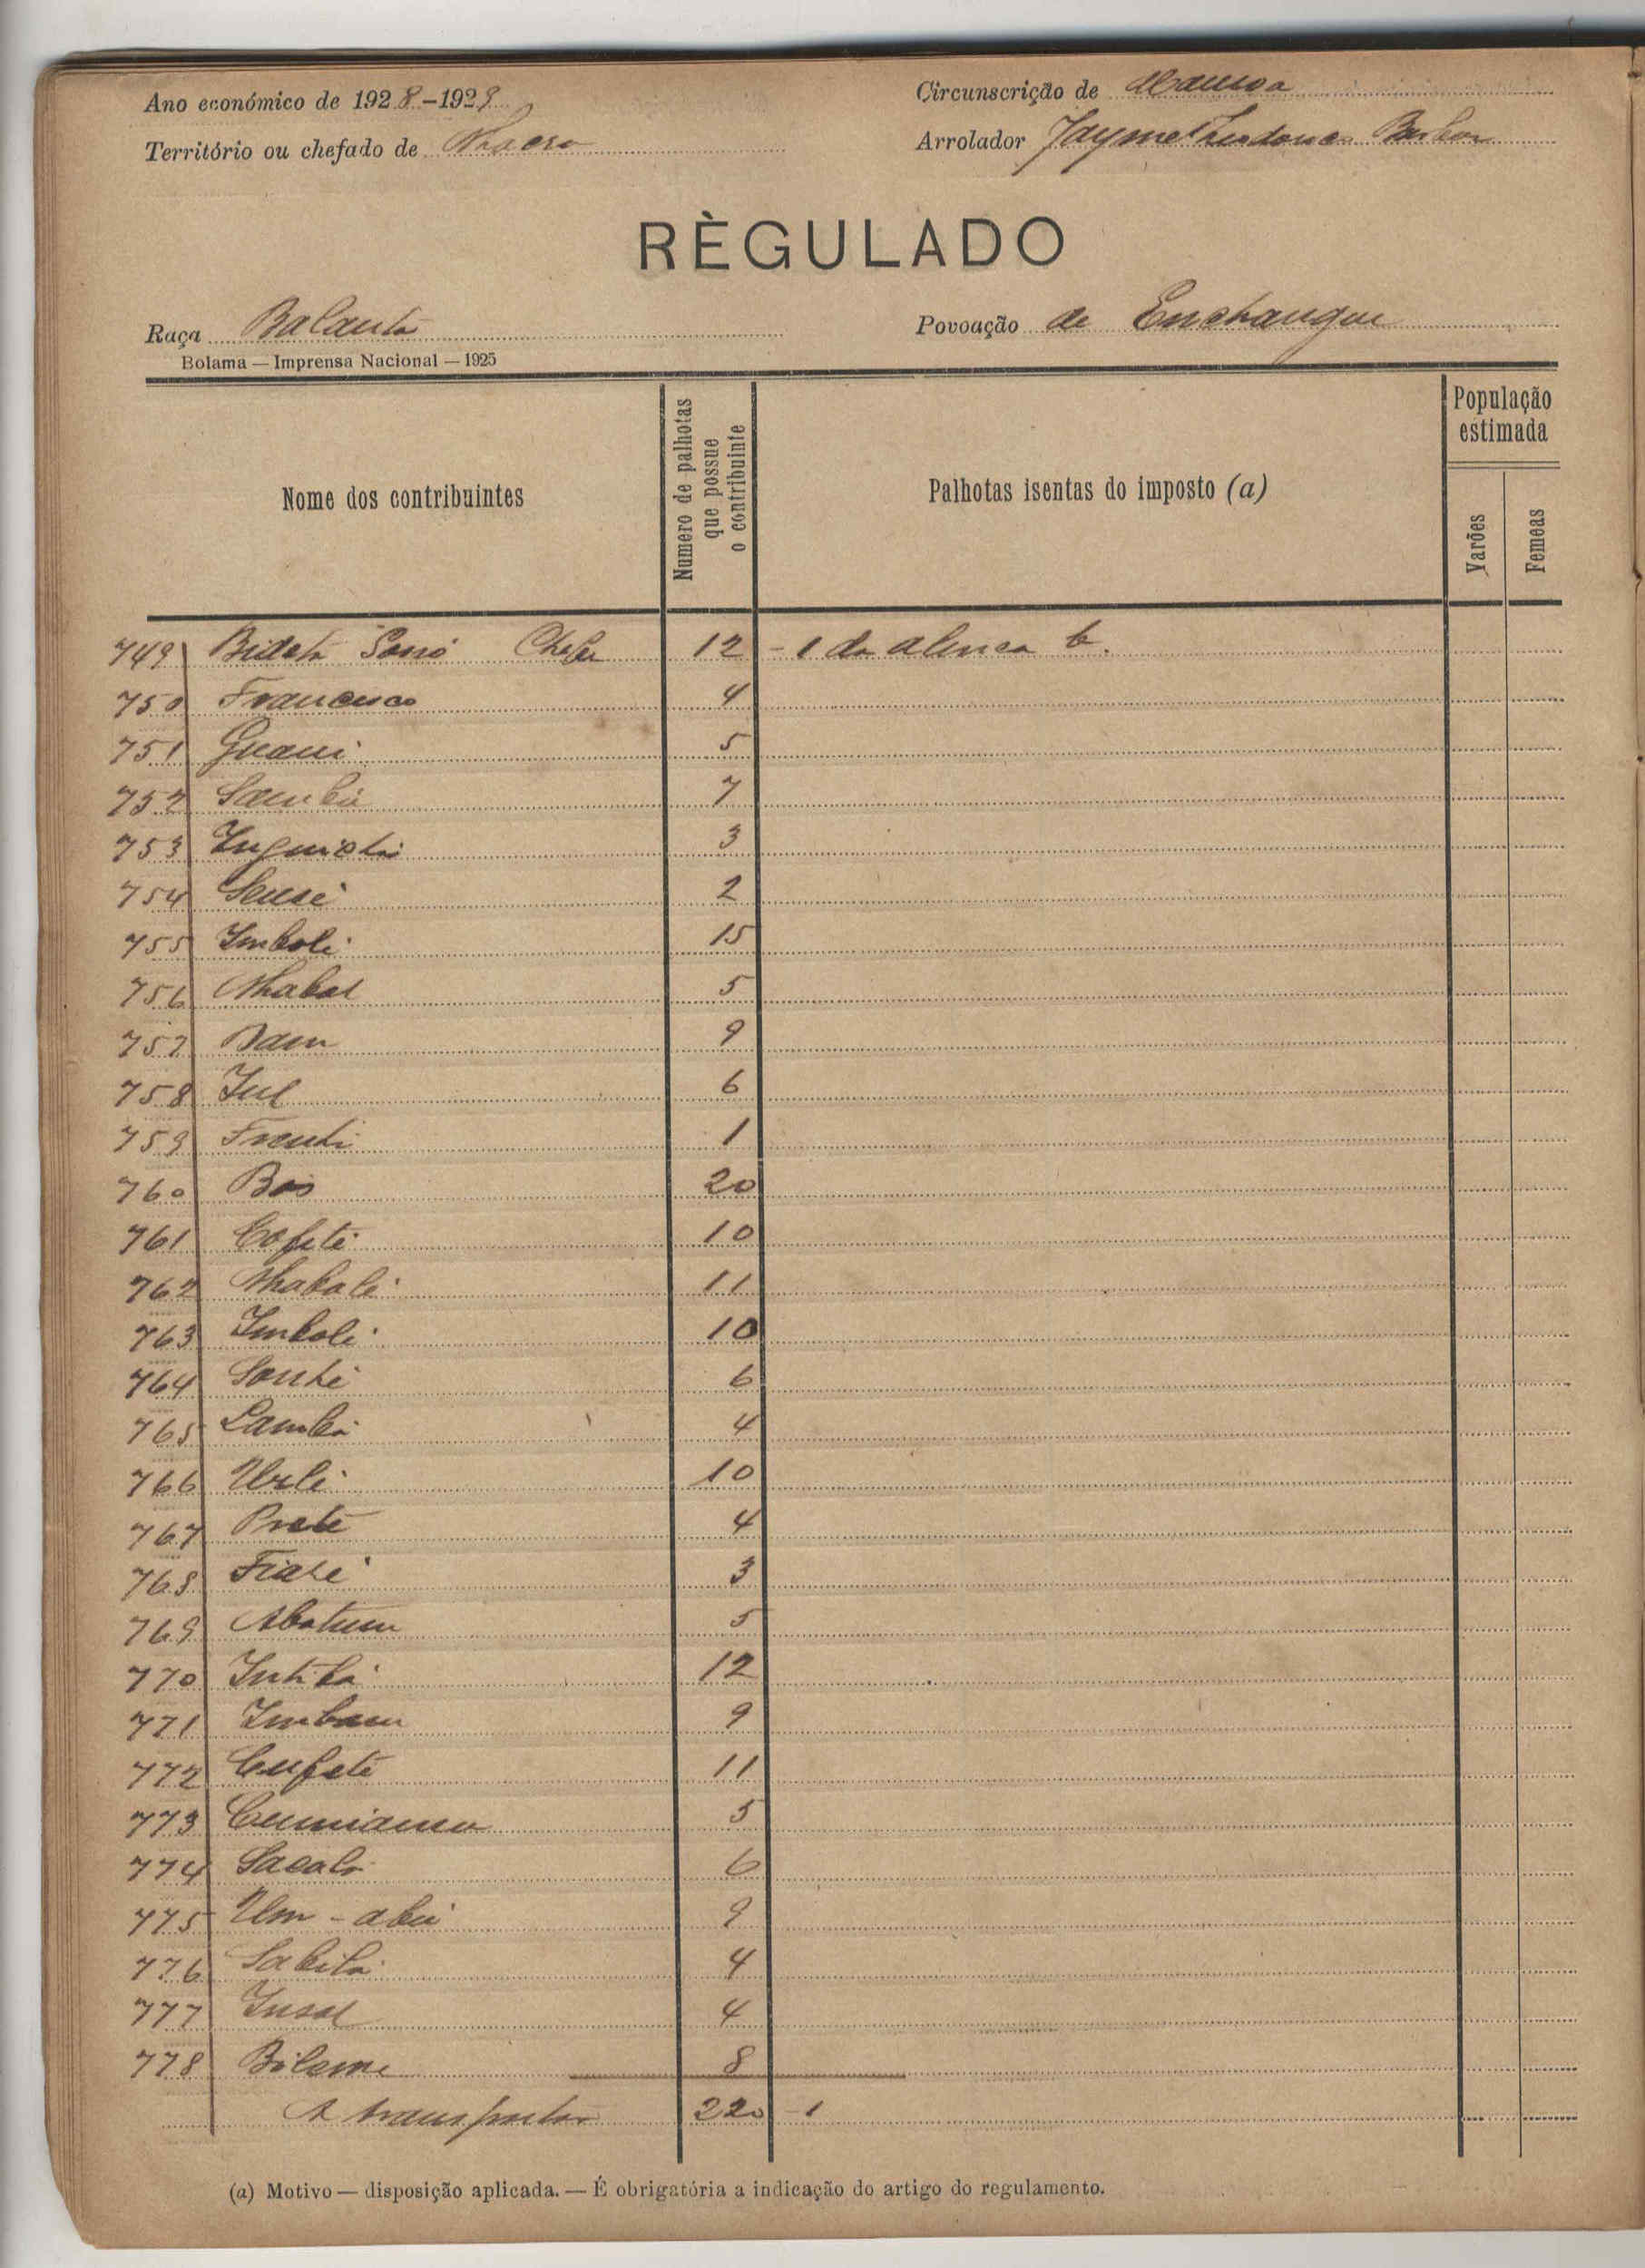 Ano económico de 1928-1929
Circunscrição de Mansoa
Território ou chefado de Nhacra
Arrolador Jayme
RÈGULADO
Raça Balanta
Povoação de Enchangue
Bolama — Imprensa Nacional — 1925
Nome dos contribuintes
Numero de palhotas que possue o contribuinte
Palhotas isentas do imposto (a)
População estimada
Varões
Femeas
749 Sonó Chefe 12 - 1 da alinea b.
750 Francisco 4
751 Guani 5
752 Sambú 7
753 3
754 2
755 Imboli 15
756 Nhabal 5
757 Bam 9
758 Jul 6
759 1
760 20
761 Cofeté 10
762 Nhabali 11
763 Imboli 10
764 6
765 Lambá 4
766 Urli 10
767 Preté 4
768 3
769 Abatum 5
770 12
771 Imbam 9
772 Cufeté 11
773 5
774 6
775 Um-abú 9
776 4
777 Insol 4
778 8
A transportar 220 - 1
(a) Motivo — disposição aplicada. — É obrigatória a indicação do artigo do regulamento.